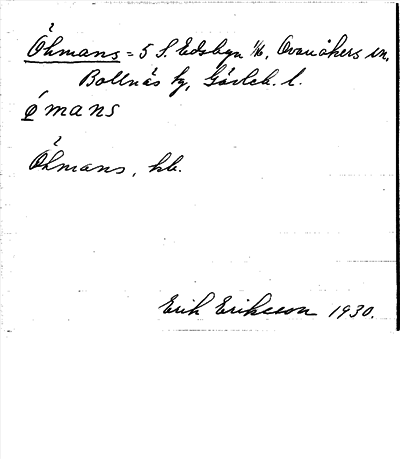 Öhmans = 5 S. Edsbyn 1/16, Ovanåkers sn,
Bollnäs tg, Gävleb. l.
ǿmans
Öhmans, hb.
Erik Eriksson 1930.